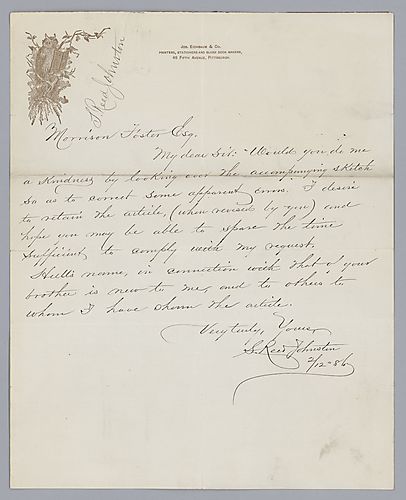 Jos. Eichbaum & Co.
Printers, Stationers and Blank Book Makers,
48 Fifth Avenue, Pittsburgh.
S Reed Johnston
Morrison Foster Esq.
My dear Sir:- Would you do me
a kindness by looking over the accompanying sketch
so as to correct some apparent errors. I desire
to retain the article, (when revised by you) and
hope you may be able to spare the time
sufficient to comply with my request.
Hull's name, in connection with that of your
brother is new to me, and to others to
whom I have shown the article.
Very truly, Yours,
S. Reed Johnston
2/12-86